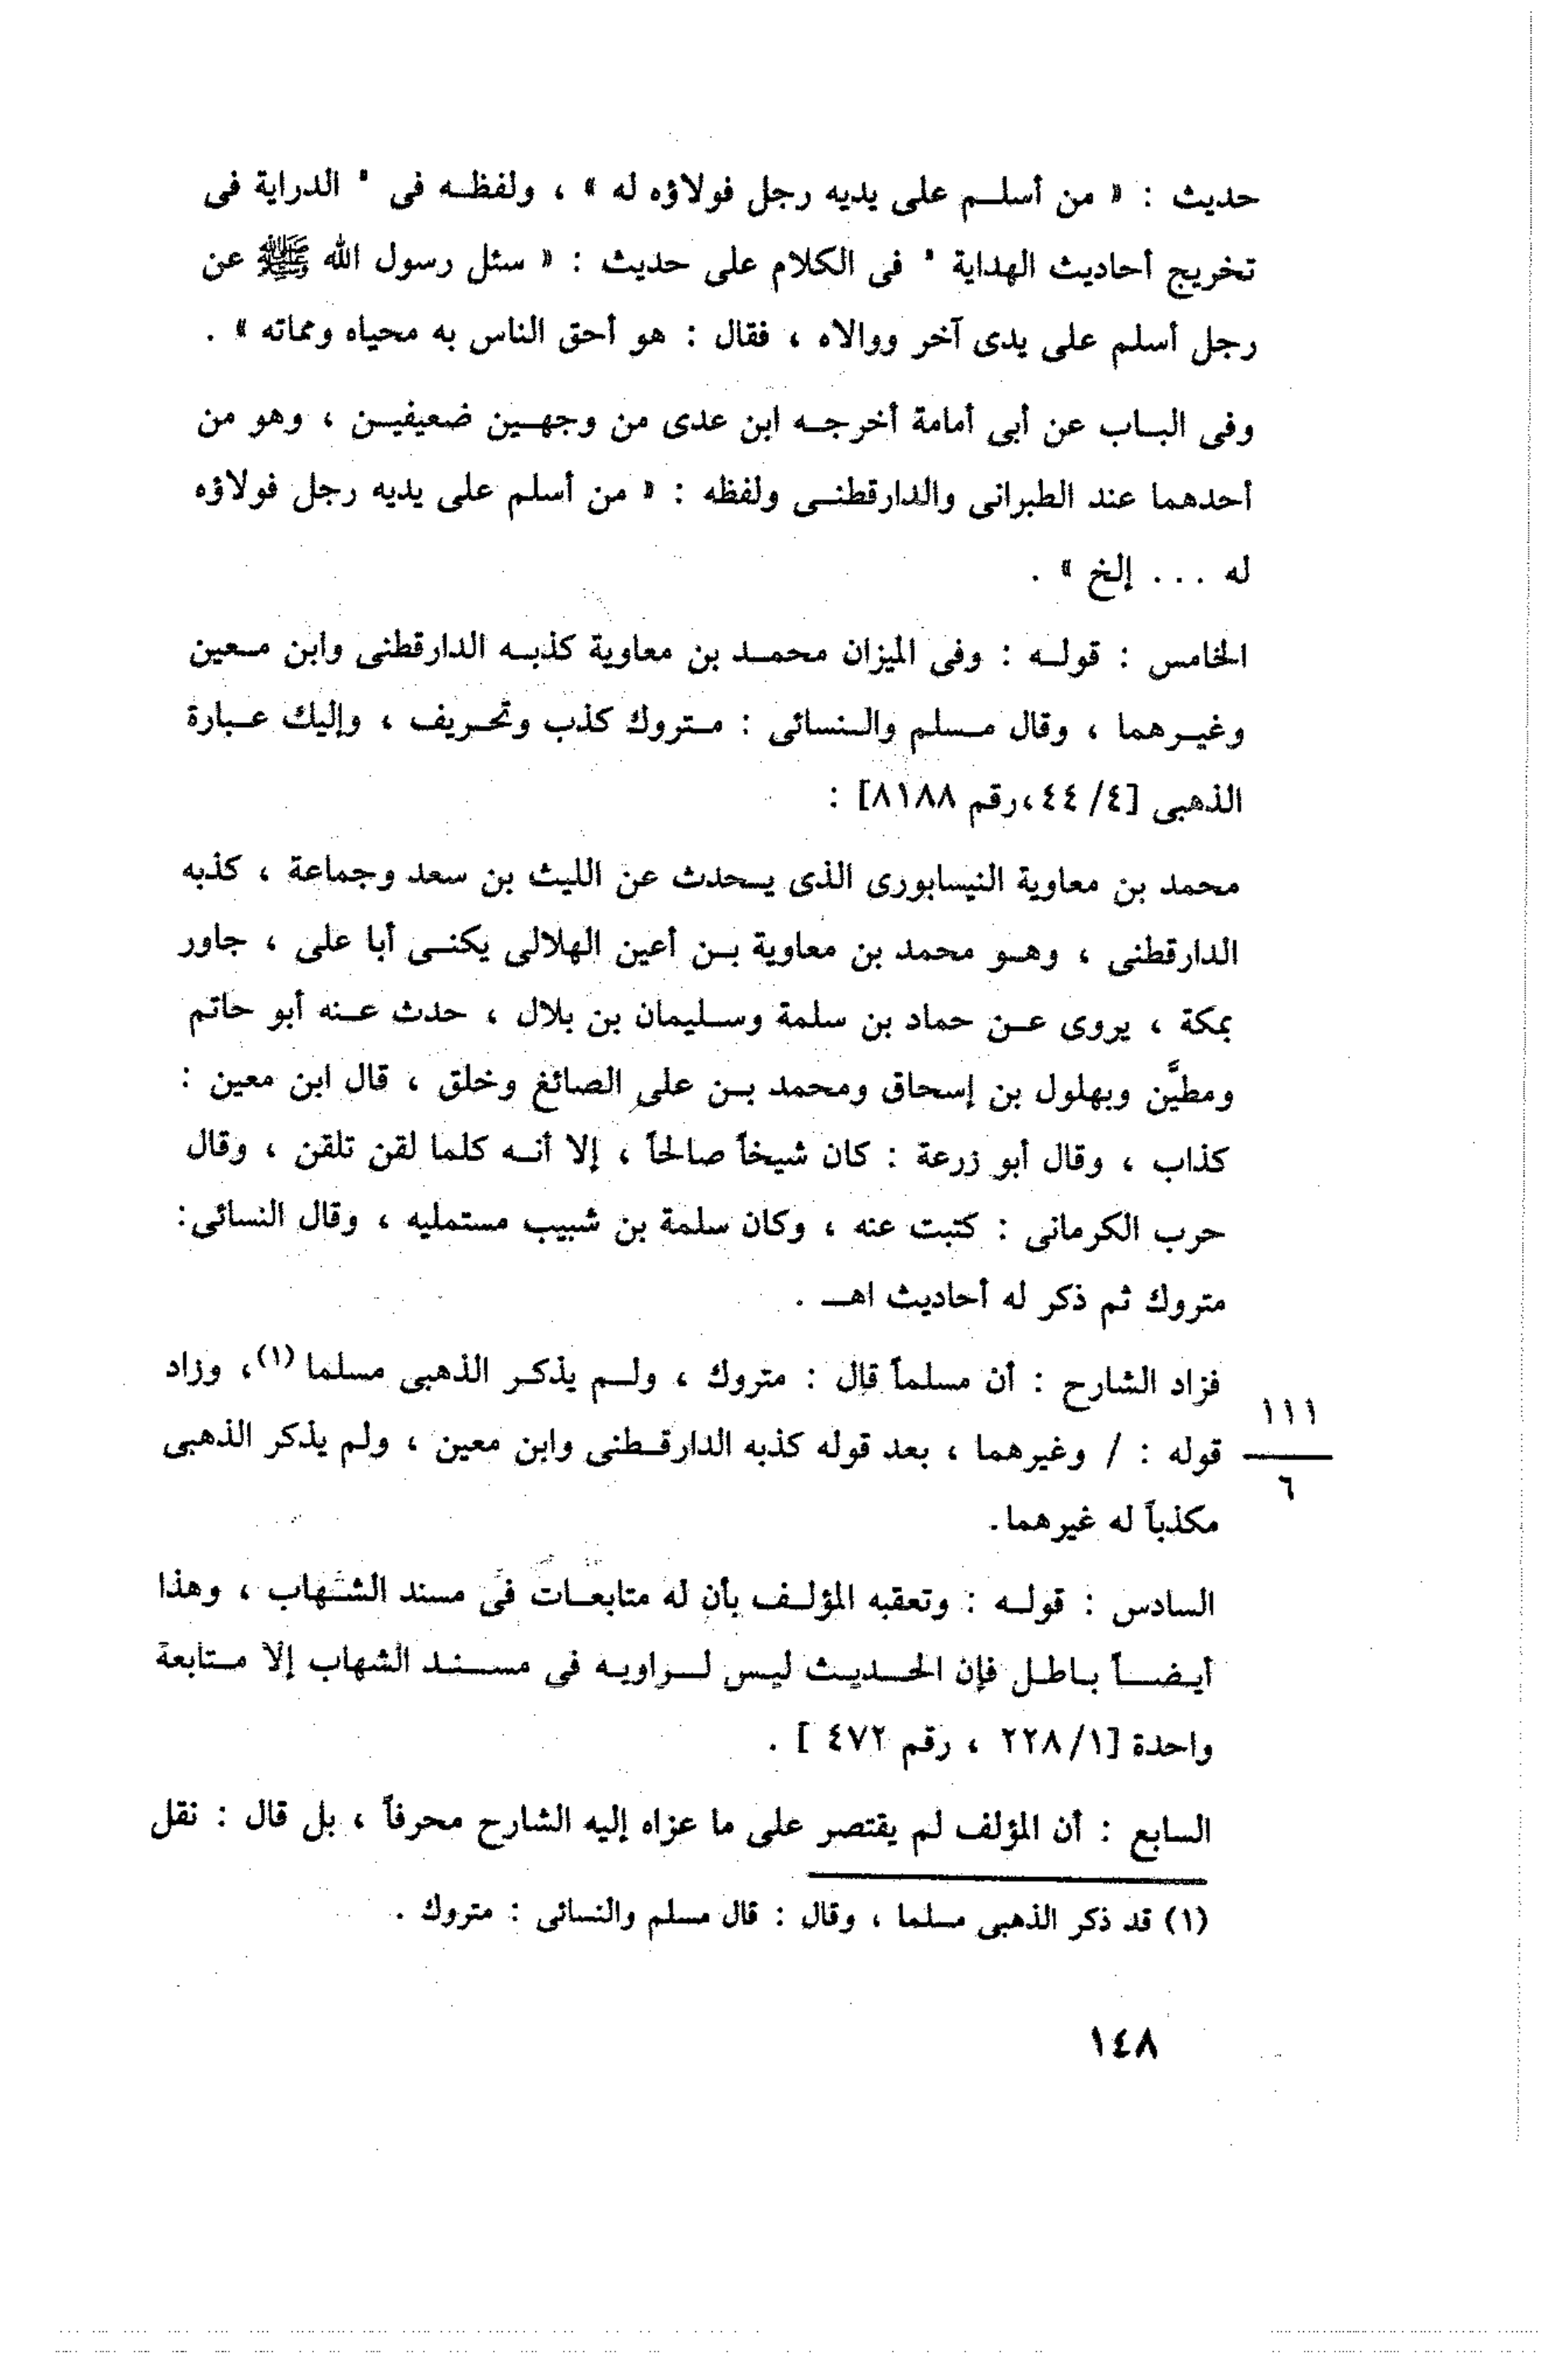 حديث : « من أسلم على يديه رجل فولاؤه له » ، ولفظه فى " الدراية فى
تخريج أحاديث الهداية " فى الكلام على حديث : « سئل رسول الله ﷺ عن
رجل أسلم على يدى آخر ووالاه ، فقال : هو أحق الناس به محياه ومماته » .
وفى الباب عن أبى أمامة أخرجه ابن عدى من وجهين ضعيفين ، وهو من
أحدهما عند الطبرانى والدارقطنى ولفظه : « من أسلم على يديه رجل فولاؤه
له ... إلخ » .
الخامس : قوله : وفى الميزان محمد بن معاوية كذبه الدارقطنى وابن معين
وغيرهما ، وقال مسلم والنسائى : متروك كذب وتحريف ، وإليك عبارة
الذهبى [٤/ ٤٤،رقم ٨١٨٨] :
محمد بن معاوية النيسابورى الذى يحدث عن الليث بن سعد وجماعة ، كذبه
الدارقطنى ، وهو محمد بن معاوية بن أعين الهلالى يكنى أبا على ، جاور
بمكة ، يروى عن حماد بن سلمة وسليمان بن بلال ، حدث عنه أبو حاتم
ومطيَّن وبهلول بن إسحاق ومحمد بن على الصائغ وخلق ، قال ابن معين :
كذاب ، وقال أبو زرعة : كان شيخاً صالحاً ، إلا أنه كلما لقن تلقن ، وقال
حرب الكرمانى : كتبت عنه ، وكان سلمة بن شبيب مستمليه ، وقال النسائى:
متروك ثم ذكر له أحاديث اهـ .
فزاد الشارح : أن مسلماً قال : متروك ، ولم يذكر الذهبى مسلما (١)، وزاد
١١١
قوله : / وغيرهما ، بعد قوله كذبه الدارقطنى وابن معين ، ولم يذكر الذهبى
٦
مكذباً له غيرهما.
السادس : قوله : وتعقبه المؤلف بأن له متابعات فى مسند الشهاب ، وهذا
أيضاً باطل فإن الحديث ليس لراويه فى مسند الشهاب إلا متابعة
واحدة [١/ ٢٢٨ ، رقم ٤٧٢ ] .
السابع : أن المؤلف لم يقتصر على ما عزاه إليه الشارح محرفاً ، بل قال : نقل
(١) قد ذكر الذهبى مسلما ، وقال : قال مسلم والنسائى : متروك .
١٤٨